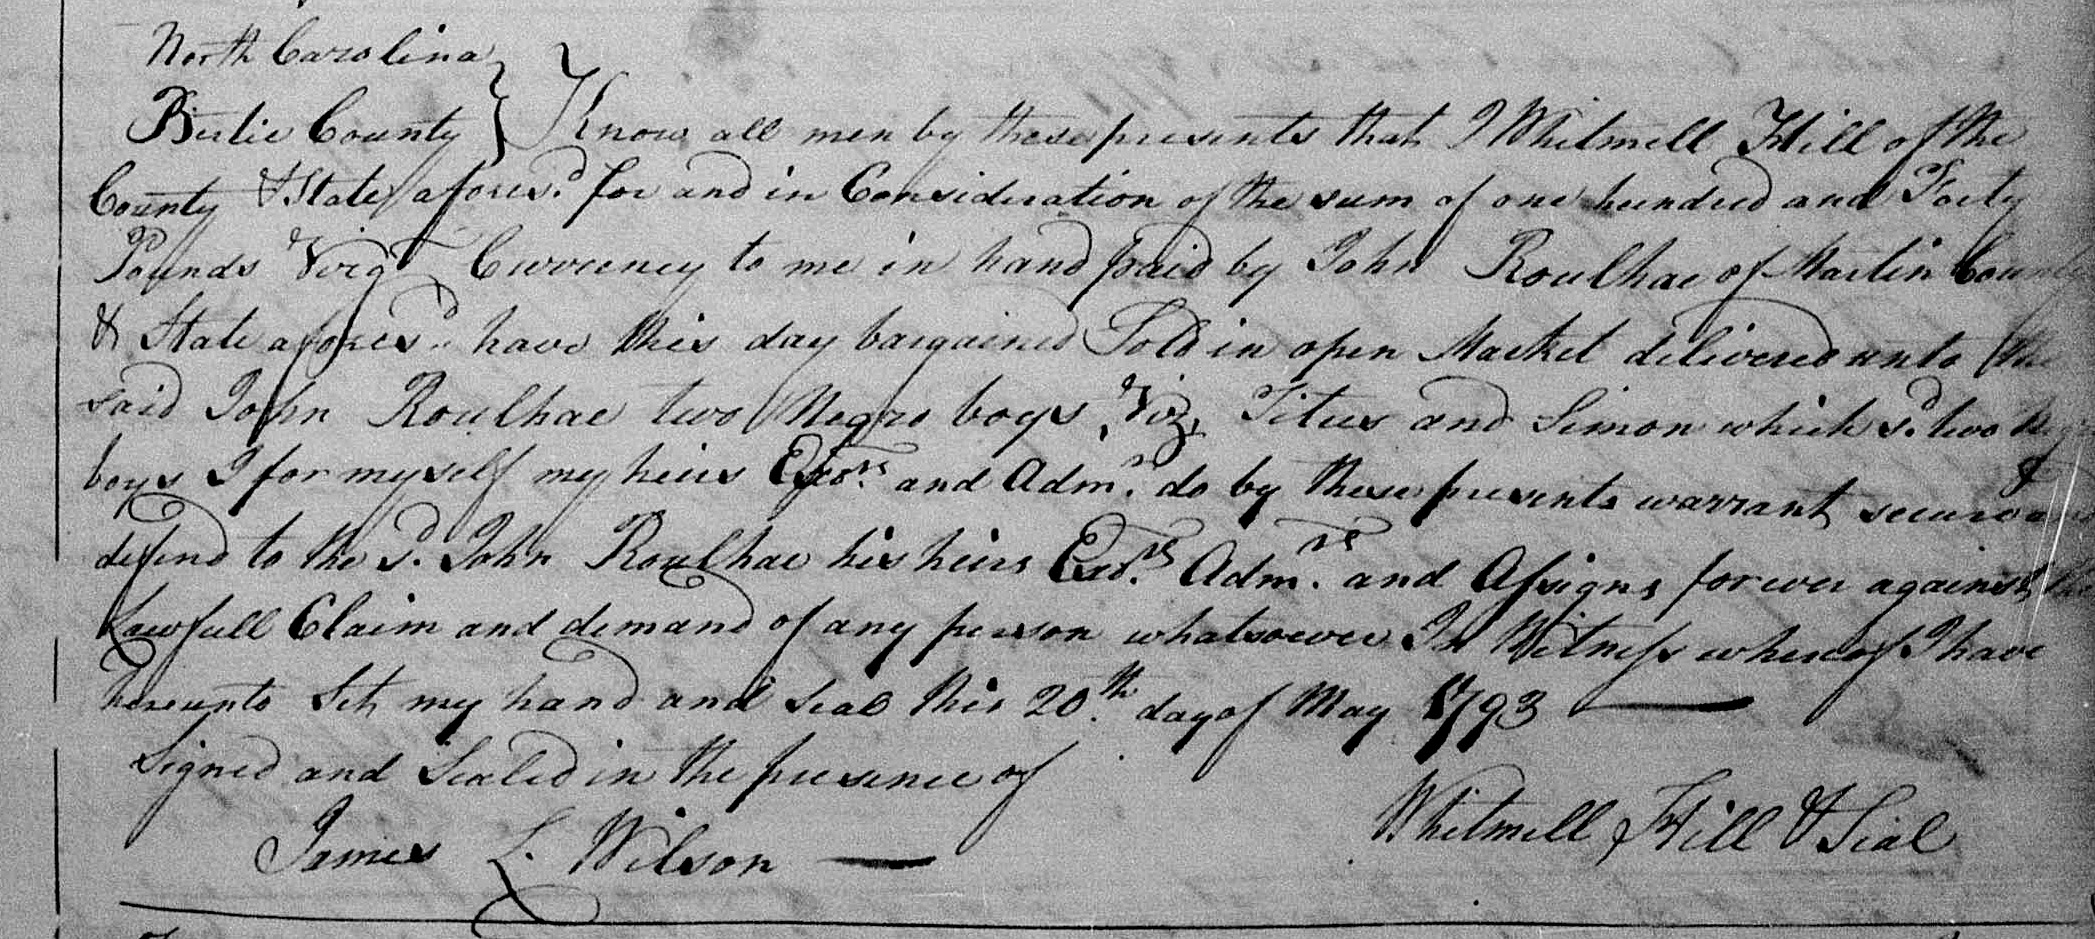 North Carolina
Bertie County } Know all men by these presents that I Whitmell Hill of the
County & State afores.d for and in Consideration of the sum of one hundred and Forty
Pounds Virg.a Currency to me in hand paid by John Roulhac of Martin County
& State afores.d have this day bargained Sold in open Market delivered unto the
said John Roulhac two Negro boys, Viz, Titus and Simon which s.d two Negro
boys I for myself my heirs Exo.rs and Adm.rs do by these presents warrant secure &
defend to the s.d John Roulhac his heirs Exo.rs Adm.rs and Assigns forever against the
Lawfull Claim and demand of any person whatsoever In Witness whereof I have
hereunto Set my hand and Seal this 20.th day of May 1793
Signed and Sealed in the presence of
Whitmell Hill & Seal
James L. Wilson